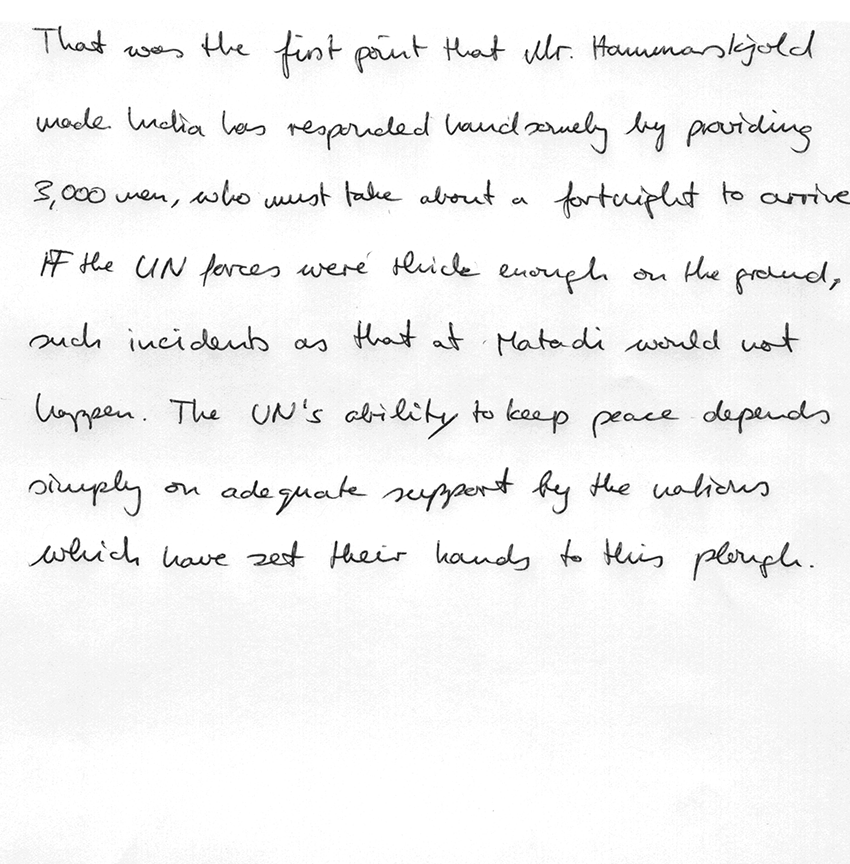 That was the first point that Mr. Hammarskjold
made. India has responded handsomely by providing
3,000 men, who must take about a fortnight to arrive
If the UN forces were thick enough on the ground,
such incidents as that at Matadi would not
happen. The UN's ability to keep peace depends
simply on adequate support by the nations
which have set their hands to this plough.